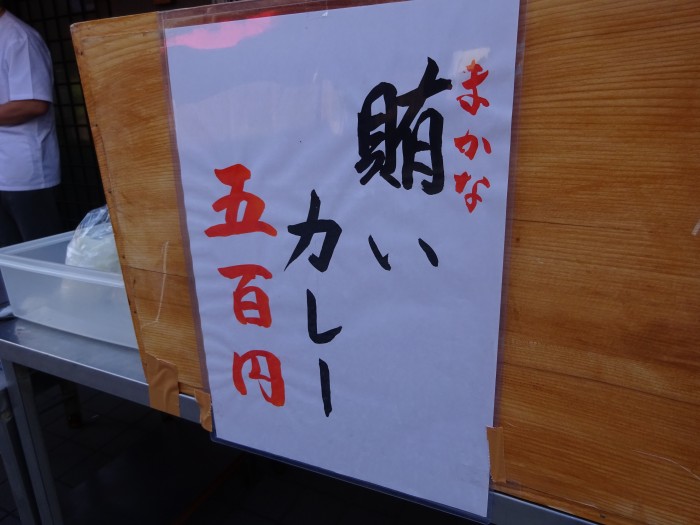 まかな
賄い
カレー
五百円